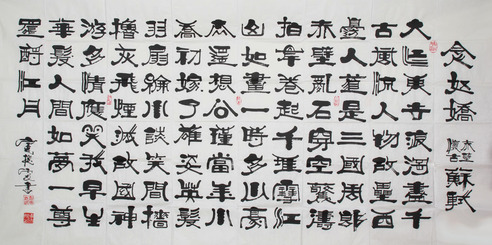 念奴嬌 赤壁懷古 蘇軾
大江東去浪淘盡千
古風流人物故壘西
邊人道是三國周郎
赤壁亂石穿空驚濤
拍岸卷起千堆雪江
山如畫一時多少豪
杰遙想公瑾當年小
喬初嫁了雄姿英發
羽扇綸巾談笑間檣
櫓灰飛煙滅故國神
遊多情應笑我早生
華髮人間如夢一尊
還酹江月